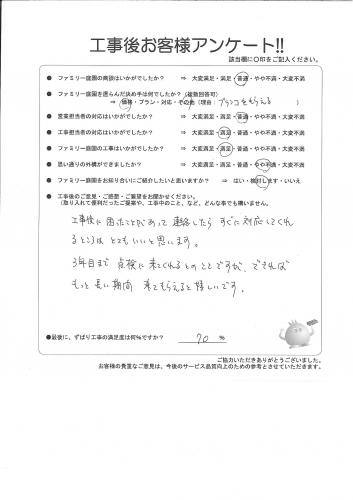 工事後お客様アンケート!!
該当欄に〇印をご記入ください。
● ファミリー庭園の商談はいかがでしたか？ ⇒ 大変満足・満足・普通・やや不満・大変不満
● ファミリー庭園を選んだ決め手は何でしたか？（複数回答可）
⇒ 価格・プラン・対応・その他（理由：ブランコをもらえる ）
● 営業担当者の対応はいかがでしたか？ ⇒ 大変満足・満足・普通・やや不満・大変不満
● 工事担当者の対応はいかがでしたか？ ⇒ 大変満足・満足・普通・やや不満・大変不満
● ファミリー庭園の工事はいかがでしたか？ ⇒ 大変満足・満足・普通・やや不満・大変不満
● 思い通りの外構ができましたか？ ⇒ 大変満足・満足・普通・やや不満・大変不満
● ファミリー庭園をお知り合いにご紹介したいと思いますか？ ⇒ はい・検討します・いいえ
● 工事後のご意見・ご感想・ご要望をお聞かせください。
（取り入れて便利だったご提案や、工事中のこと、など、どんな事でも構いません。
工事後に困ったことがあって連絡したらすぐに対応してくれ
るところはとてもいいと思います。
3年目まで点検に来てくれるとのことですが、できれば
もっと長い期間来てもらえると嬉しいです。
●最後に、ずばり工事の満足度は何％ですか？ 70 %
ご協力いただきありがとうございました。
お客様の貴重なご意見は、今後のサービス品質向上のための参考とさせていただきます。